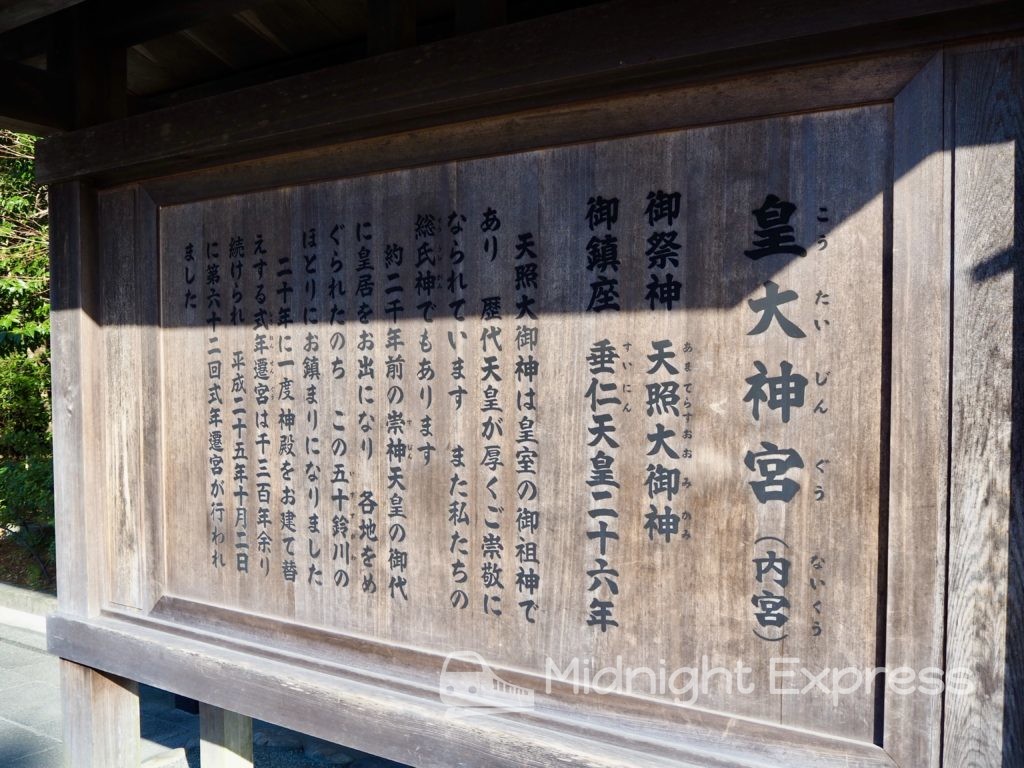 皇大神宮（内宮）
こうたいじんぐうないくう
御祭神　天照大御神
あまてらすおおみのかみ
御鎮座　垂仁天皇二十六年
すいにん
天照大御神は皇室の御祖神で
あり　歴代天皇が厚くご崇敬に
なられています　また私たちの
総氏神でもあります
約二千年前の崇神天皇の御代
すじん
に皇居をお出になり　各地をめ
ぐられたのち　この五十鈴川の
ほとりにお鎮まりになりました
二十年に一度神殿をお建て替
えする式年遷宮は千三百年余り
続けられ　平成二十五年十月二日
に第六十二回式年遷宮が行われ
ました
Midnight Express